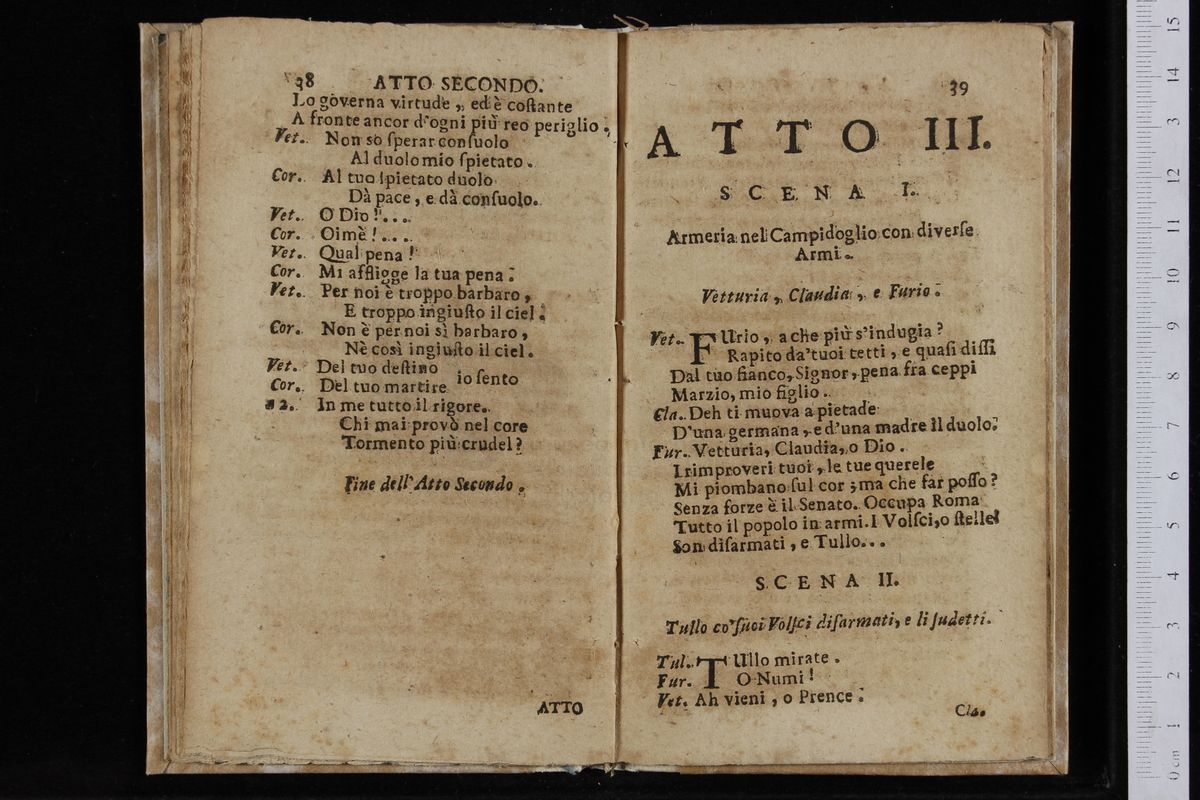 38 ATTO SECONDO.
Lo governa virtude, ed è coſtante
A fronte ancor d'ogni più reo periglio.
Vet. Non so ſperar conſuolo
Al duolo mio ſpietato.
Cor. Al tuo ſpietato duolo
Dà pace, e dà conſuolo.
Vet. O Dio!....
Cor. Oimè!....
Vet. Qual pena!
Cor. Mi affligge la tua pena.
Vet. Per noi è troppo barbaro,
E troppo ingiuſto il ciel.
Cor. Non è per noi sì barbaro,
Nè così ingiuſto il ciel.
Vet. Del tuo deſtino
io ſento
Cor. Del tuo martire
a 2. In me tutto il rigore.
Chi mai provò nel core
Tormento più crudel?
Fine dell'Atto Secondo.
ATTO
39
ATTO III.
SCENA I.
Armeria nel Campidoglio con diverſe
Armi.
Vetturia, Claudia, e Furio.
Vet. FUrio, a che più s'indugia?
Rapito da'tuoi tetti, e quaſi diſſi
Dal tuo fianco, Signor, pena fra ceppi
Marzio, mio figlio.
Cla. Deh ti muova a pietade
D'una germana, e d'una madre il duolo.
Fur. Vetturia, Claudia, o Dio.
I rimproveri tuoi, le tue querele
Mi piombano ſul cor; ma che far poſſo?
Senza forze è il Senato. Occupa Roma
Tutto il popolo in armi. I Volſci, o ſtelle!
Son diſarmati, e Tullo...
SCENA II.
Tullo co'ſuoi Volſci diſarmati, e li ſudetti.
Tul. TUllo mirate.
Fur. O Numi!
Vet. Ah vieni, o Prence.
Cla.
0 cm 1 2 3 4 5 6 7 8 9 10 11 12 13 14 15